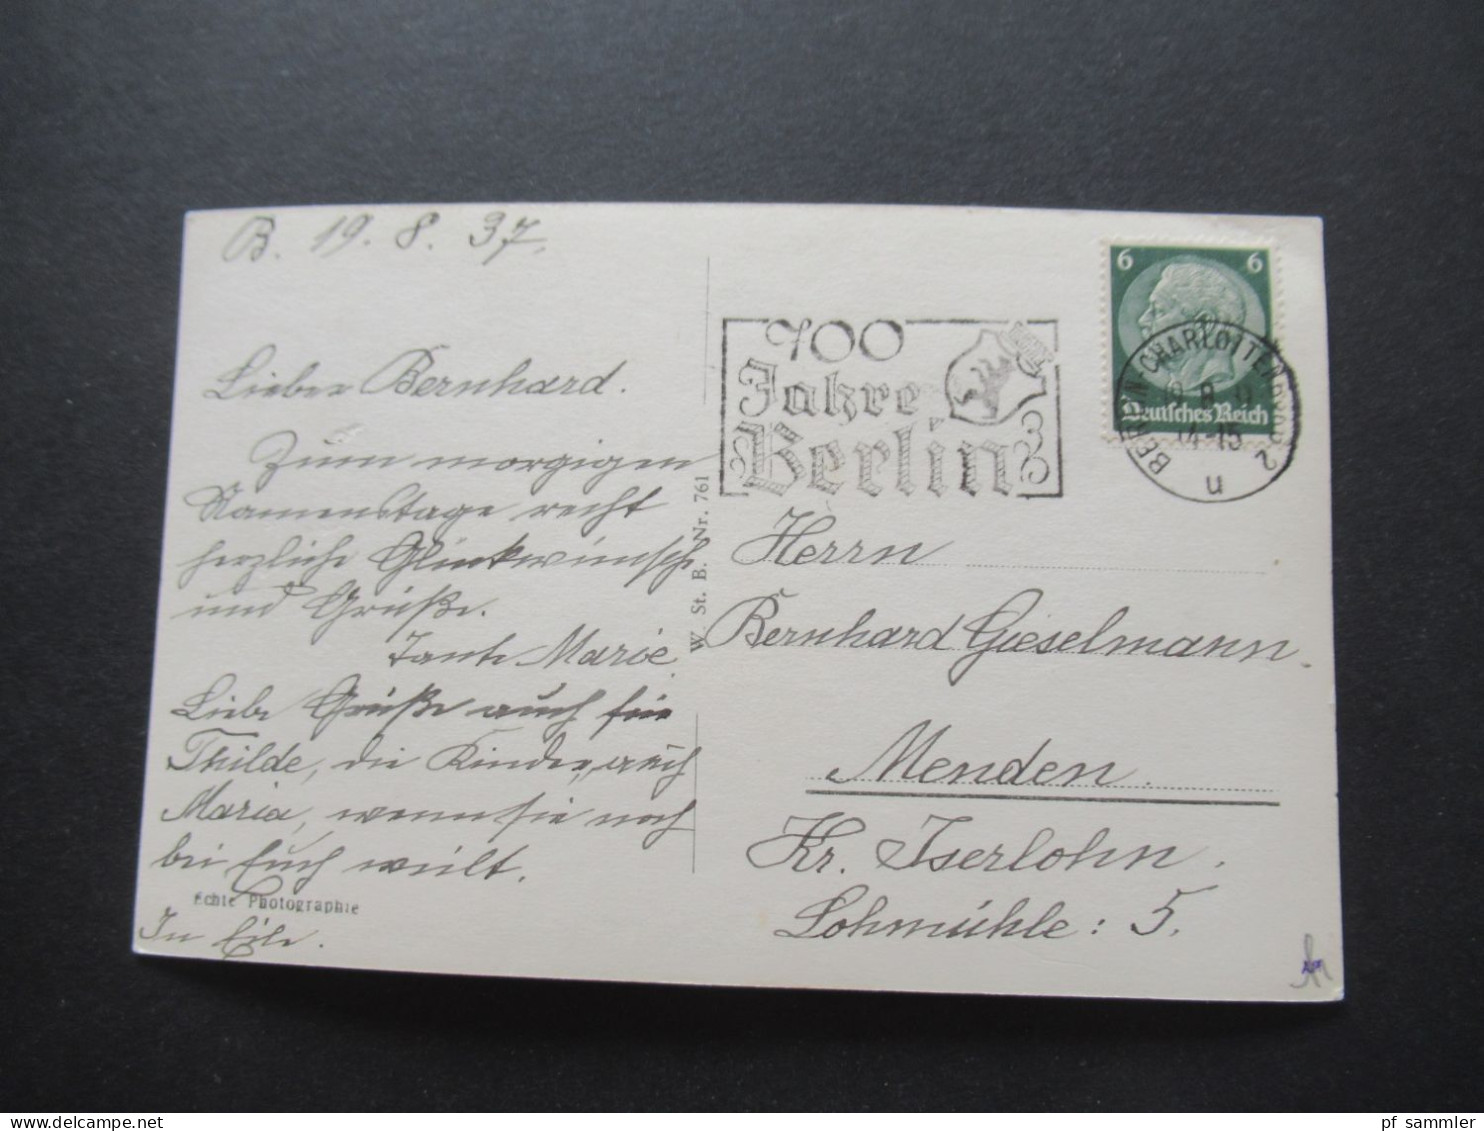 B. 19. 8. 37.
Lieber Bernhard.
Zum morgigen
Namenstage recht
herzliche Glückwünsche
und Grüße.
Tante Marie
Liebe Grüße auch für
Thilde, die Kinder, auch
Maria, wenn sie noch
bei Euch weilt.
Echte Photographie
In Eile.
W. St. B. Nr. 761
700
Jahre
Berlin
6 6
Deutsches Reich
BERLIN-CHARLOTTENBURG 2
14-15
u
Herrn
Bernhard Gieselmann.
Menden.
Kr. Iserlohn.
Lohmühle: 5.
pf_sammler